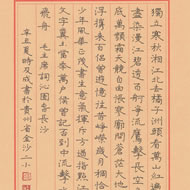 獨立寒秋湘江北去橘子洲頭看萬山紅遍層林
盡染漫江碧透百舸爭流鷹擊長空魚翔淺
底萬類霜天競自由悵寥廓問蒼茫大地誰主沉
浮攜來百侶曾遊憶往昔崢嶸歲月稠恰同學
少年風華正茂書生意氣揮斥方遒指點江山激揚
文字糞土當年萬戶侯曾記否到中流擊水浪遏
飛舟 毛主席詞沁園春長沙
辛丑夏時及成書於貴州省金沙二小